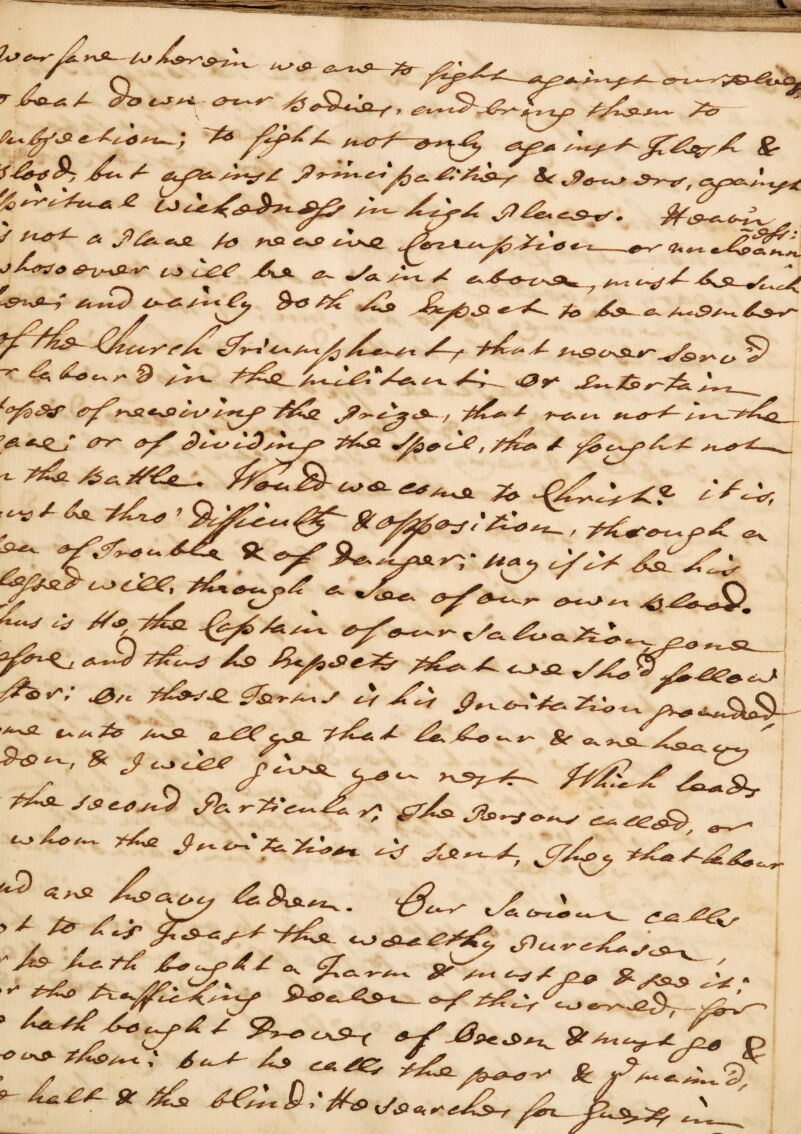 warfare wherein we are to fight against ourselves,
o beat down our Bodies, and bring them to
subjection; to fight not only against Flesh &
Blood, but against Principalities & Powers, against
spiritual wickedness in high Places. Heav'n
is not a Place to receive Corruption or uncleann
ess:
whosoever will be a saint above, must be such
here; and vainly doth he Expect to be a member
of the Church Triumphant, that never serv'd
or labour'd in the militant: Or Entertain
hopes of receiving the Prize, that ran not in the
race; or of dividing the Spoil, that fought not
n the Battle. Would we come to Christ? it is,
ust be thro' Difficulty & opposition, through a
Sea of Trouble & of Danger; nay if it be his
lessed will, through a Sea of our own Blood.
hus is He, the Captain of our Salvation, gone
efore, and thus he Expects that we sho'd follow
fter: On these Terms is his Invitation grounded,
me unto me all ye that labour & are heavy
den, & I will give you rest. Which leads
the second Particular; The Persons called, or
whom the Invitation is sent, They that labour
nd are heavy laden. Our Saviour calls
ot to his Feast the wealthy Purchaser,
r he hath bought a Farm & must go & see it;
or the trafficking Dealer of this world, for
e hath bought Droves of Oxen & must go &
rove them; but he calls the poor & ye maim'd,
e halt & the blind: He searches for Guests in